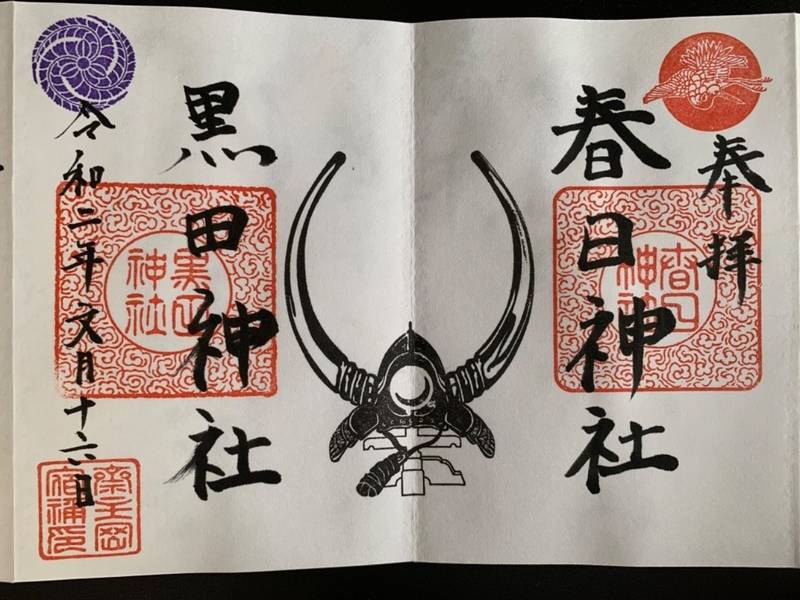 奉拝
春日神社
春日
神社
黒田神社
黒田
神社
令和二年文月十六日